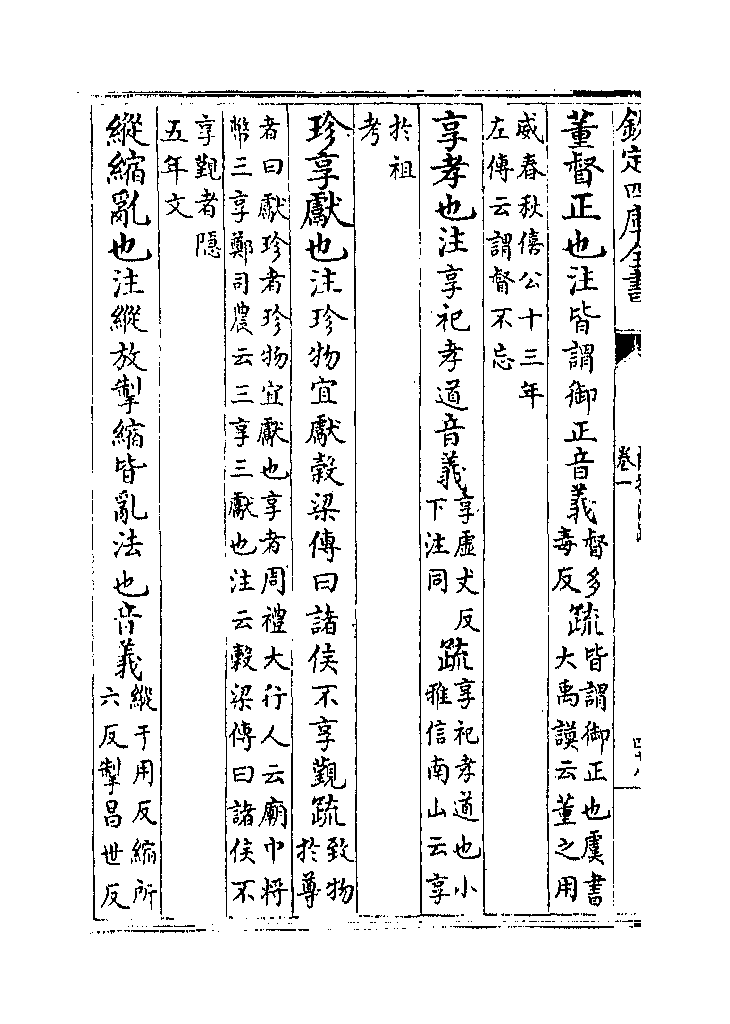 欽定四庫全書
卷一
董督正也注皆謂御正音義督多毒反疏皆謂御正也虞書大禹謨云董之用
威春秋僖公十三年左傳云謂督不忘
享孝也注享祀孝道音義享虛丈反下注同疏享祀孝道也小雅信南山云享
於祖考
珍享獻也注珍物宜獻穀梁傳曰諸侯不享覲疏致物於尊
者曰獻珍者珍物宜獻也享者周禮大行人云廟中將幣三享鄭司農云三享三獻也注云穀梁傳曰諸侯不
享覲者隱五年文
縱縮亂也注縱放掣縮皆亂法也音義縱于用反縮所六反掣昌世反